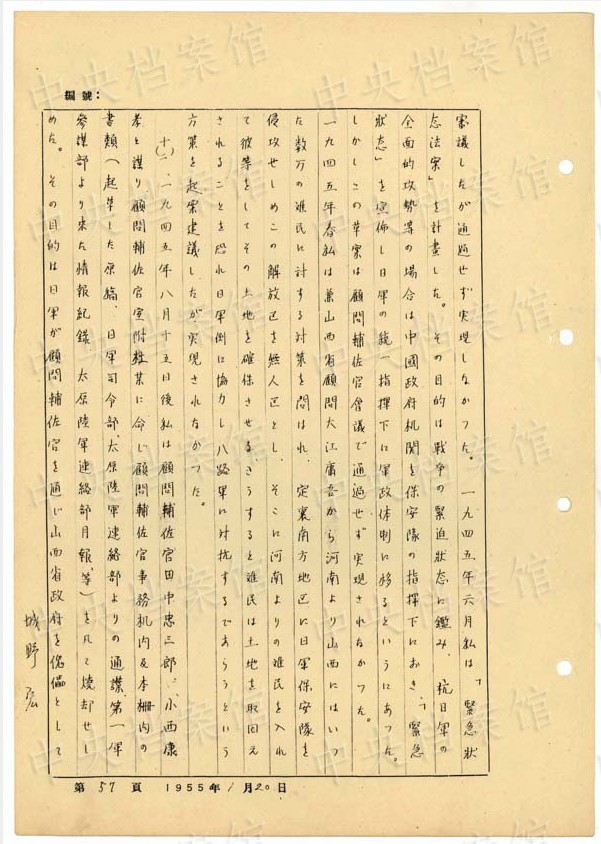 編號：
審議したが通過せず実現しなかった。一九四五年六月私は「緊急状
態法案」を計畫した。その目的は戦争の緊迫状态に鑑み、抗日軍の
全面的攻勢等の場合は中國政府机関を保安隊の指揮下におき、「緊急
狀态」を宣佈し日軍の統一指揮下に軍政体制に移るというにあった。
しかしこの草案は顧問輔佐官會議で通過せず実現されなかった。
一九四五年春私は兼山西省顧問大江廣吾から河南より山西にはいっ
た数万の難民に対する対策を問はれ、定襄南方地区に日軍保安隊を
侵攻せしめこの解放区を無人区とし、そこに河南よりの難民を入れ
て彼等をしてその土地を確保させる、さうすると難民は土地を取回え
されることを恐れ日軍側に協力し八路軍に対抗するであらうという
方策を起案建議したが実現されなかった。
十一、一九四五年八月十五日後私は顧問輔佐官田中忠三郎、小西康
孝と謀り、顧問輔佐官室附 に命じ顧問輔佐官事務机内及本棚内の
書類（起草した原稿、日軍司令部、太原陸軍連絡部よりの通諜、第一軍
參謀部より来た情報紀錄、太原陸軍連絡部月報、等）を凡て燒却せし
めた。その目的は日軍が顧問輔佐官を通じ山西省政府を傀儡として
城野宏
第57頁 1955年1月20日
中央档案馆